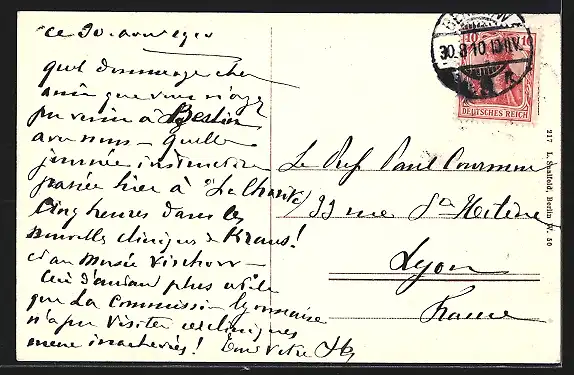 ce 30 août 1910
quel dommage cher
ami que vous n'ayez
pu venir à Berlin
avec nous – quelle
journée instructive
passée hier à "La Charité"
Cinq heures dans les
nouvelles cliniques de Kraus!
et au Musée Virchow –
Ceci d'autant plus utile
que la Commission lyonnaise
n'a pu visiter cliniques
même inachevées! Tout votre
BERLIN
30.8.10
10
10
DEUTSCHES REICH
Le Prof Paul Courmont
33 rue Ste Hélène
Lyon
France
217 L. Saalfeld, Berlin W. 50